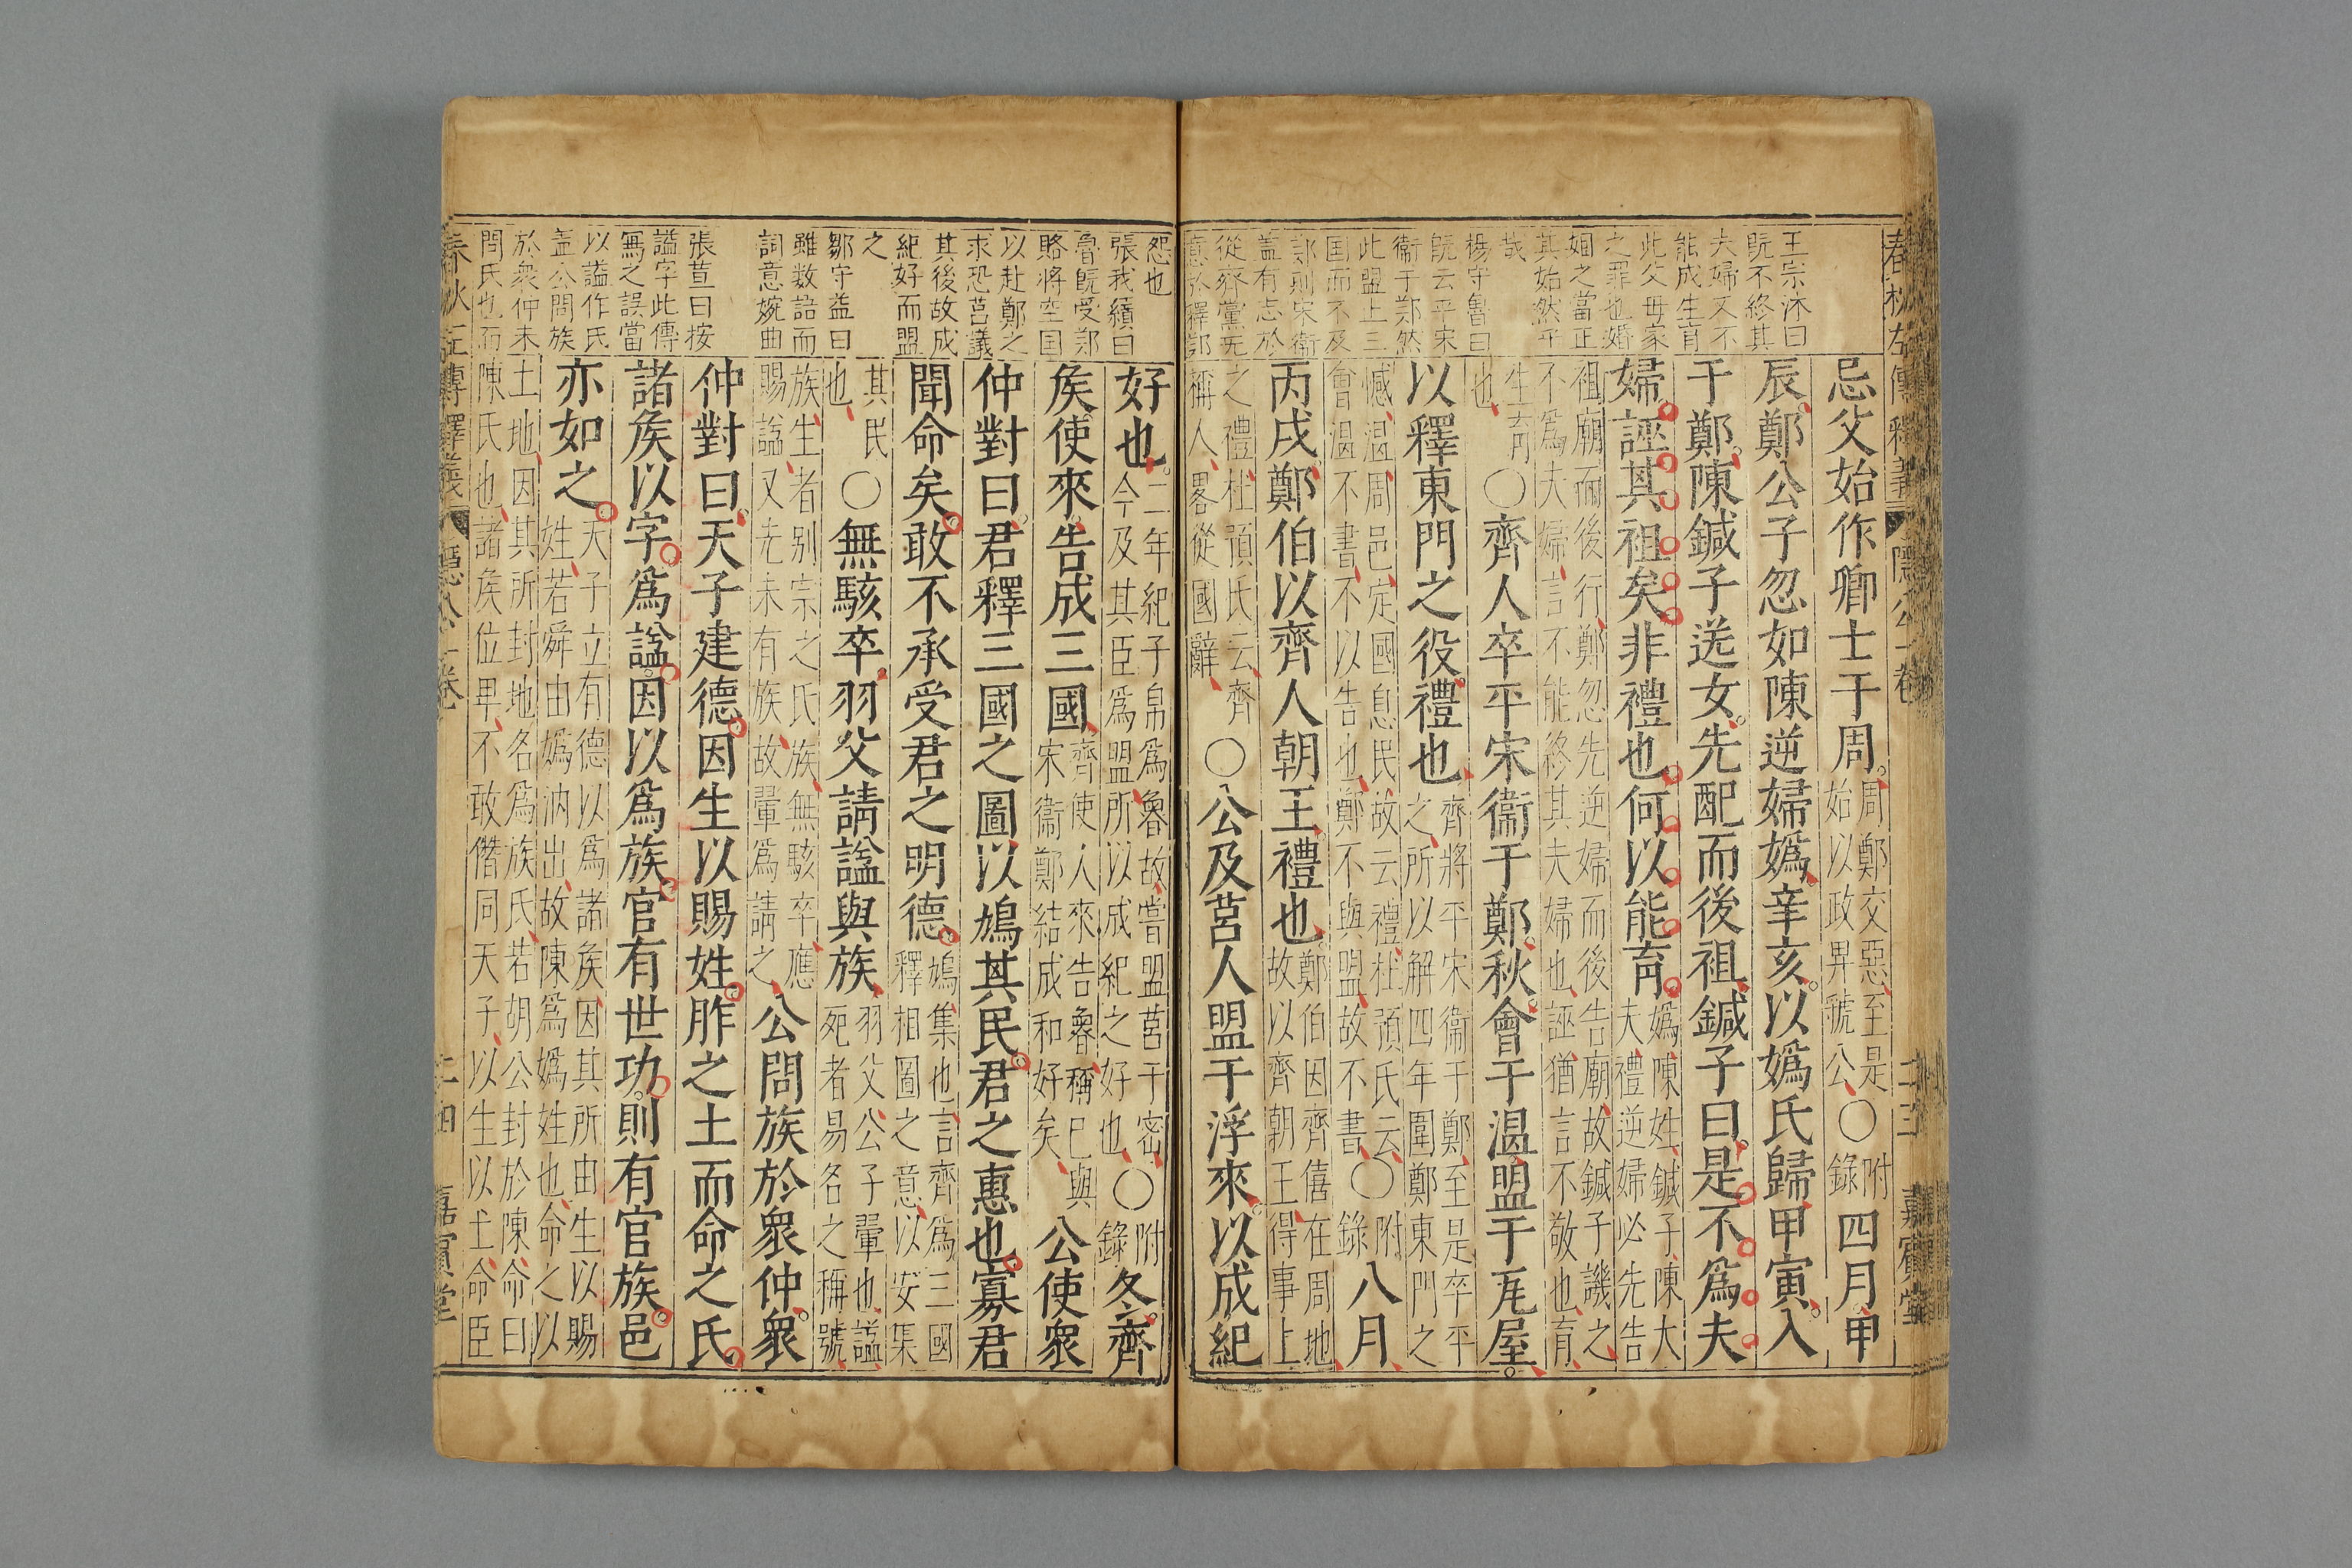 春秋左傳釋義 隱公一卷 二十三 嘉賓堂
王宗沐曰
既不終其
夫婦又不
能成生育
此父母家
之罪也婚
姻之當正
其始然乎
哉
楊守魯曰
既云平宋
衛于鄭然
此盟止三
国而不及
鄭則宋衛
盖有志於
從齊黨无
意於釋鄭
忌父始作卿士于周
周鄭交惡至是
始以政畀虢公
○附錄
四月甲
辰鄭公子忽如陳逆婦嬀辛亥以嬀氏歸甲寅入
于鄭陳鍼子送女先配而後祖鍼子曰是不爲夫
婦誣其祖矣非禮也何以能育
嬀陳姓鍼子陳大
夫禮逆婦必先告
祖廟而後行鄭忽先逆婦而後告廟故鍼子譏之
不爲夫婦言不能終其夫婦也誣猶言不敬也育
生育
也
○齊人卒平宋衛于鄭秋會于温盟于瓦屋
以釋東門之役禮也
齊將平宋衛于鄭至是卒平
之所以解四年圍鄭東門之
憾温周邑定國息民故云禮杜預氏云
會温不書不以告也鄭不與盟故不書
○附錄
八月
丙戌鄭伯以齊人朝王禮也
鄭伯因齊僖在周地
故以齊朝王得事上
之禮杜預氏云齊
稱人畧從國辭
○公及莒人盟于浮來以成紀
怨也
張我績曰
魯既受鄭
賂將空国
以赴鄭之
求恐莒議
其後故成
紀好而盟
之
鄒守益曰
雖数語而
詞意婉曲
張萱曰按
謚字此傳
寫之誤當
以謚作氏
盖公問族
於衆仲未
問氏也而
好也
二年紀子帛爲魯故嘗盟莒于密
今及其臣爲盟所以成紀之好也
○附錄
冬齊
矦使來告成三國
齊使人來告魯稱已與
宋衛鄭結成和好矣
公使衆
仲對曰君釋三國之圖以鳩其民君之惠也寡君
聞命矣敢不承受君之明德
鳩集也言齊爲三國
釋相圖之意以安集
其民
也
○無駭卒羽父請謚與族
羽父公子翬也謚
死者易名之稱號
族生者别宗之氏族無駭卒應
賜謚又先未有族故翬爲請之
公問族於衆仲衆
仲對曰天子建德因生以賜姓胙之土而命之氏
諸矦以字爲謚因以爲族官有世功則有官族邑
亦如之
天子立有德以爲諸矦因其所由生以賜
姓若舜由嬀汭出故陳爲嬀姓也命之以
土地因其所封地名爲族氏若胡公封於陳命曰
陳氏也諸矦位卑不敢僭同天子以生以土命臣
春秋左傳釋義 隱公一卷 二十四 嘉賓堂